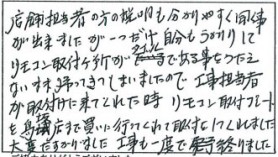 店舗担当者の方の説明も分かりやすく同様
が出来ましたが一つだけ自分もうっかりして
リモコン取付ヶ所が である事をつたえ
ないまま帰ってきてしまいましたので工事担当者
が取付けに来てくれた時リモコン取付プレート
を 店まで買いに行ってくれて取付をしてくれました
大変たすかりました工事も一度で 終りました